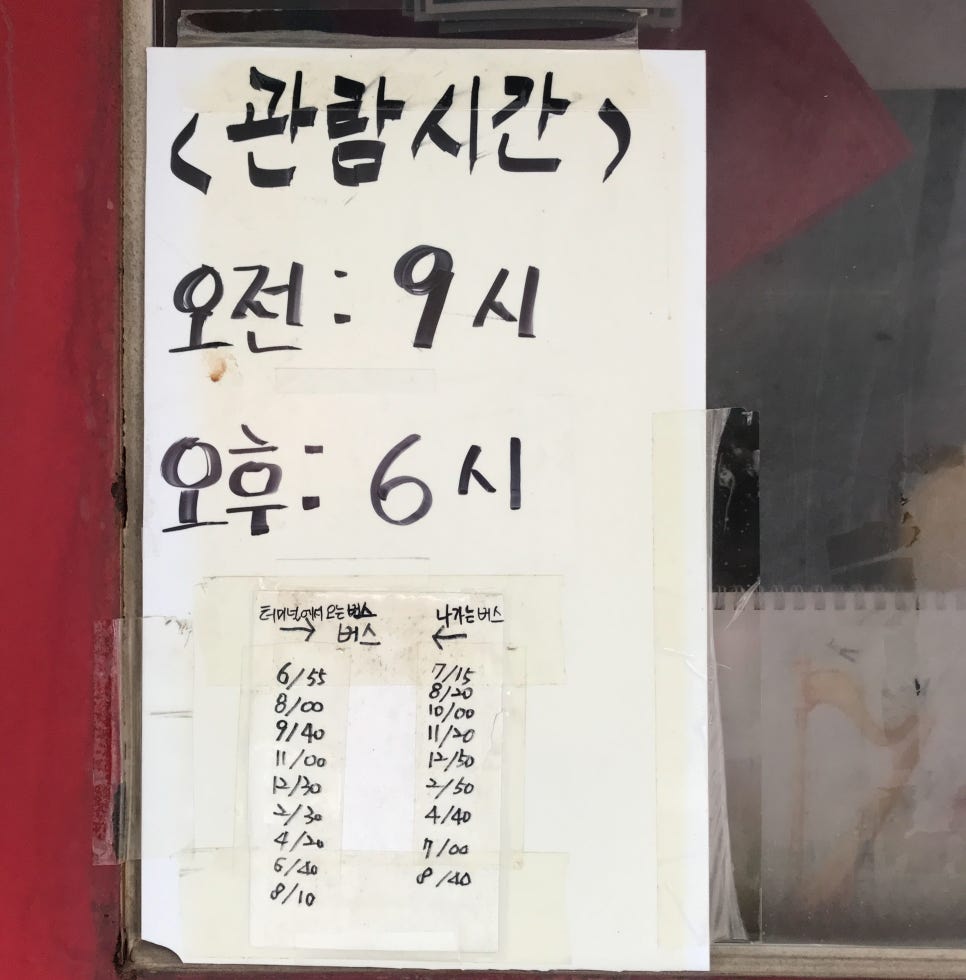 <관람시간>
오전: 9시
오후: 6시
터미널에서 오는 버스
→ 버스
6/55
8/00
9/40
11/00
12/30
2/30
4/20
6/40
8/10
나가는 버스
←
7/15
8/20
10/00
11/20
12/50
2/50
4/40
7/00
8/40